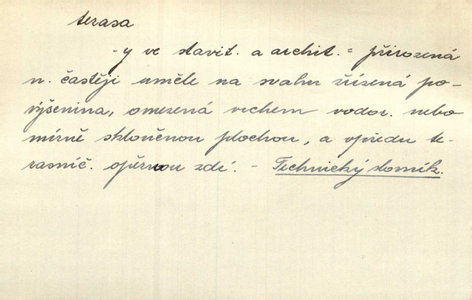 terasa
-y ve stavit. a archit. = přirozená
n. častěji uměle na svahu zřízená po-
výšenina, omezená vrchem vodor. nebo
mírně skloněnou plochou, a vpředu te-
rasníč. opěrnou zdí. - Technický slovník.